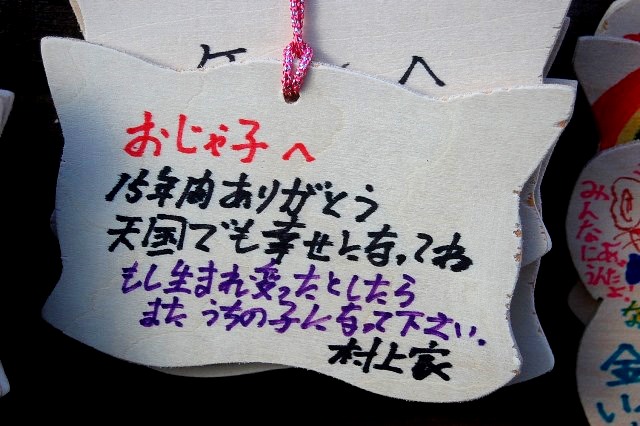 おじゃ子へ
15年間ありがとう
天国でも幸せになってね
もし生まれ変ったとしたら
またうちの子になって下さい。
村上家
みんなに